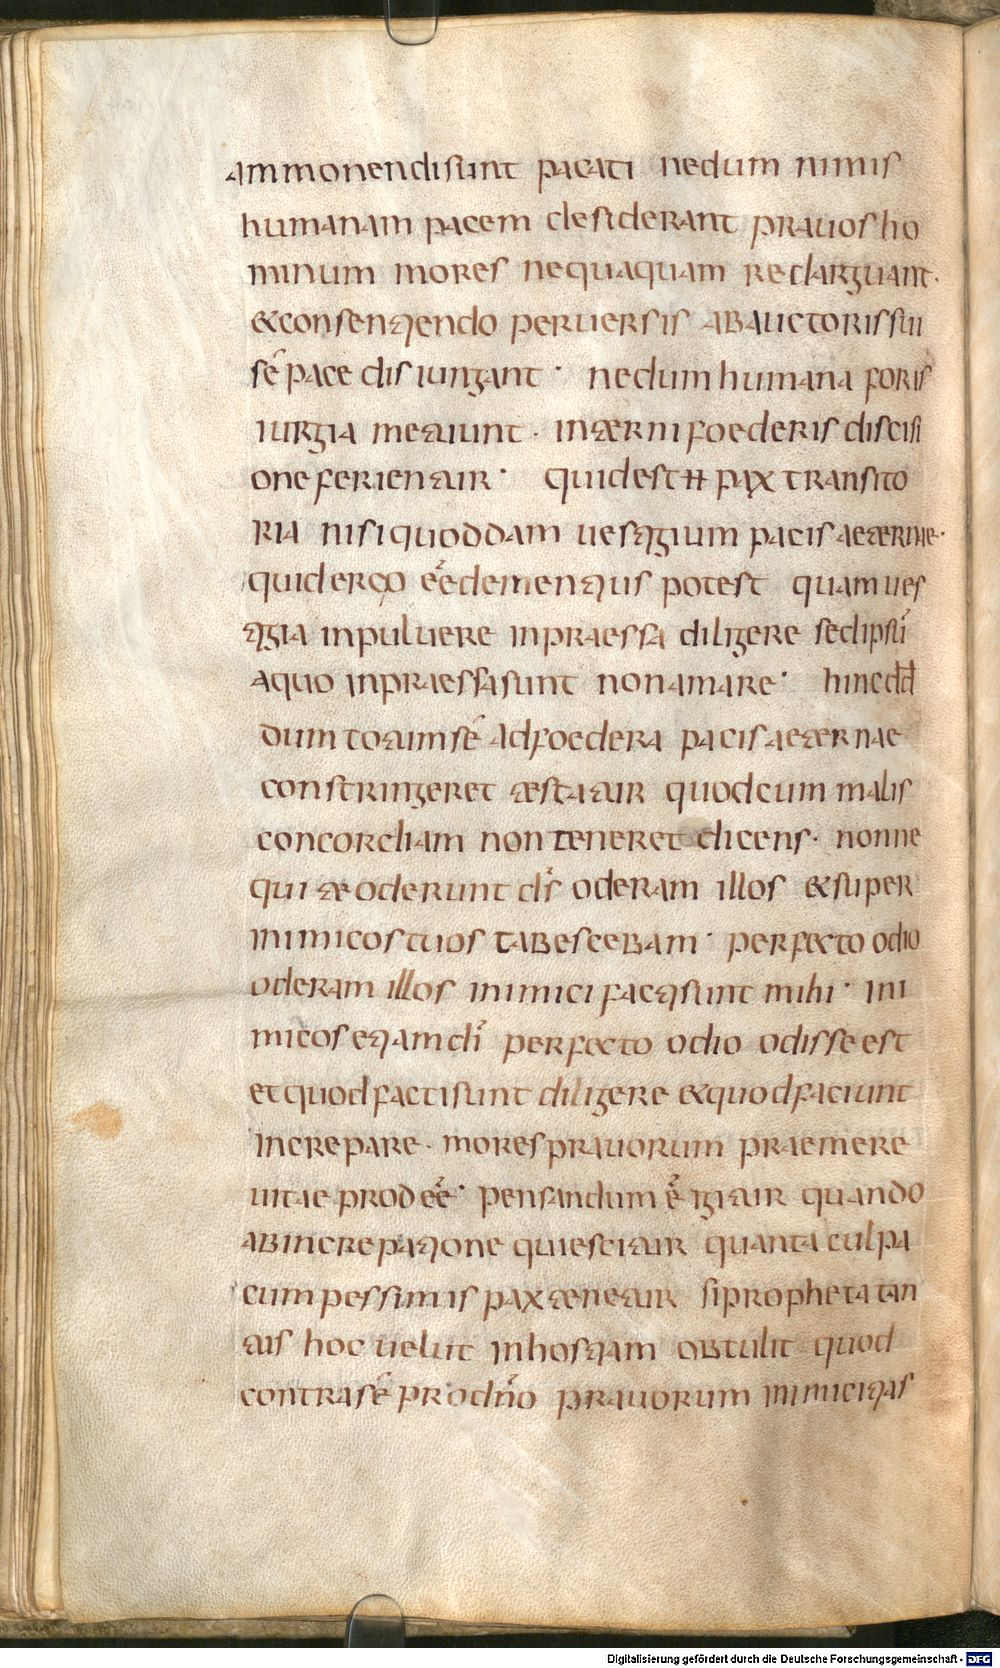 ammonendi sunt pacati nedum nimis
humanam pacem desiderant prauos ho
minum mores nequaquam redarguant·
& consentiendo peruersis ab auctoris sui
se᷑ pace disiungant· nedum humana foris
iurgia metuunt· interni foederis discisi
one ferientur· quid est ħ pax transito
ria nisi quoddam uestigium pacis aeternae·
quid ergo ee᷑ dementius potest quam ues
tigia in puluere inpraessa diligere sed ipsū
a quo inpraessa sunt non amare· hinc dd̄
dum totum se᷑ ad foedera pacis aeternae
constringeret testatur quod cum malis
concordiam non teneret dicens· nonne
qui te oderunt dn̄s oderam illos & super
inimicos tuos tabescebam· perfecto odio
oderam illos inimici facti sunt mihi· ini
micos etiam dī perfecto odio odisse est
et quod facti sunt diligere & quod faciunt
increpare· mores prauorum praemere
uitae prodee᷑· pensandum e᷑ igitur quando
ab increpatione quiescitur quanta culpa
cum pessimis pax tenetur si propheta tan
tus hoc uelut in hostiam obtulit quod
contra se᷑ pro dn̄o prauorum inimicitias
Digitalisierung gefördert durch die Deutsche Forschungsgemeinschaft - DFG